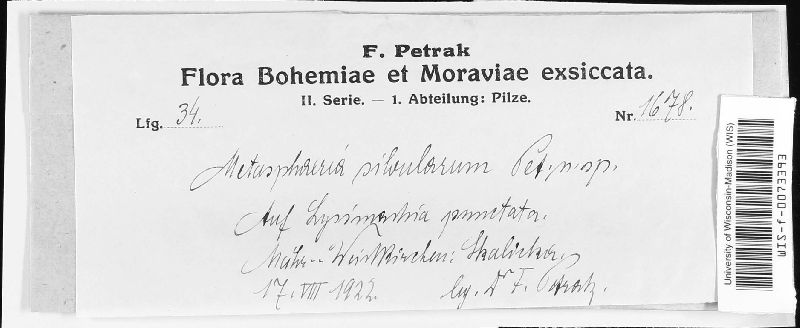 F. Petrak
Flora Bohemiae et Moraviae exsiccata.
II. Serie. — 1. Abteilung: Pilze.
Lfg. 34. Nr. 1678.
Metasphaeria silvularum Pet. n. sp.
Auf Lysimachia punctata.
Mähr.-Weisskirchen: Skalicka.
17. VIII 1922. leg. Dr F. Petrak.
University of Wisconsin-Madison (WIS)
WIS-f-0073393